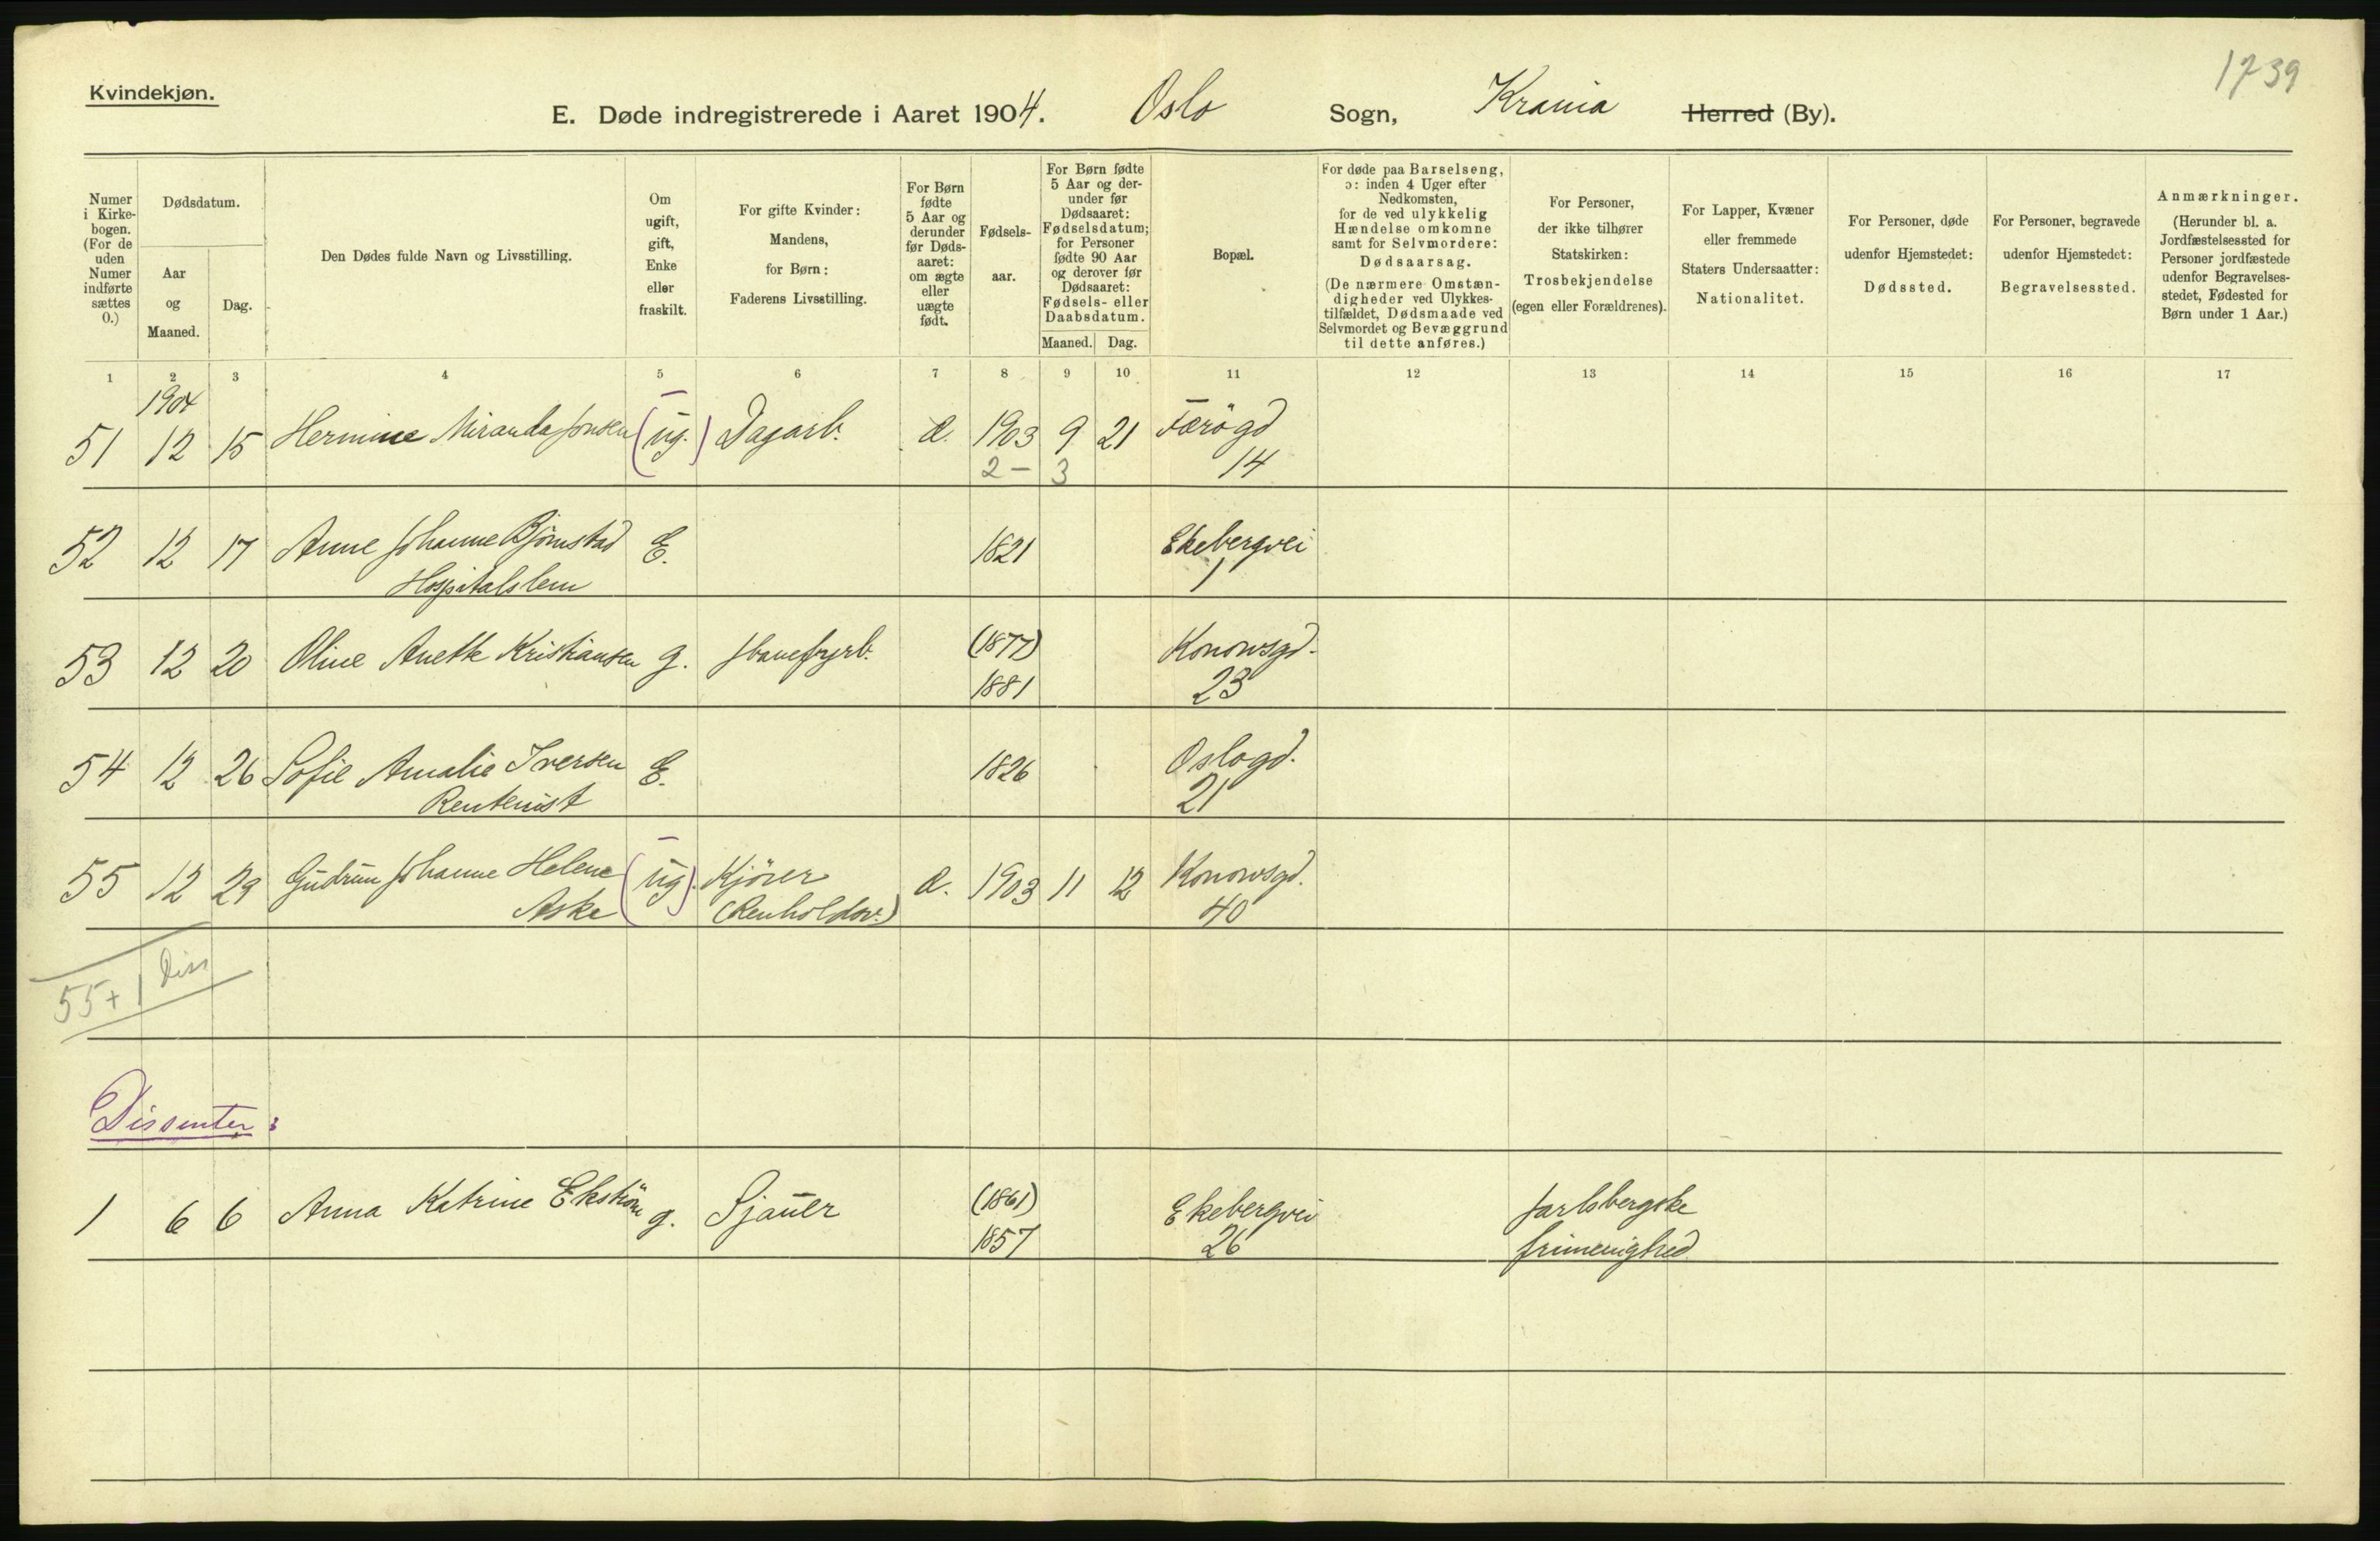 1739
Kvindekjøn.
E. Døde indregistrerede i Aaret 1904. Oslo Sogn, Krania Herred (By).
Numer i Kirke-bogen. (For de uden Numer indførte sættes 0.)
Dødsdatum.
Aar og Maaned.
Dag.
Den Dødes fulde Navn og Livsstilling.
Om ugift, gift, Enke eller fraskilt.
For gifte Kvinder: Mandens, for Børn: Faderens Livsstilling.
For Børn fødte 5 Aar og derunder før Døds-aaret: om ægte eller uægte født.
Fødsels-aar.
For Børn fødte 5 Aar og der-under før Dødsaaret: Fødselsdatum; for Personer fødte 90 Aar og derover før Dødsaaret: Fødsels- eller Daabsdatum.
Maaned. Dag.
Bopæl.
For døde paa Barselseng, ɔ: inden 4 Uger efter Nedkomsten, for de ved ulykkelig Hændelse omkomne samt for Selvmordere: Dødsaarsag. (De nærmere Omstæn-digheder ved Ulykkes-tilfældet, Dødsmaade ved Selvmordet og Bevæggrund til dette anføres.)
For Personer, der ikke tilhører Statskirken: Trosbekjendelse (egen eller Forældrenes).
For Lapper, Kvæner eller fremmede Staters Undersaatter: Nationalitet.
For Personer, døde udenfor Hjemstedet: Dødssted.
For Personer, begravede udenfor Hjemstedet: Begravelsessted.
Anmærkninger. (Herunder bl. a. Jordfæstelsessted for Personer jordfæstede udenfor Begravelses-stedet, Fødested for Børn under 1 Aar.)
1 2 3 4 5 6 7 8 9 10 11 12 13 14 15 16 17
1904
51 12 15 Hermine Miranda Jonsen (ug.) Dagarb. æ. 1903 9 21 Færögd
2 - 3 14
52 12 17 Anne Johanne Bjørnstad E. 1821 Ekebergvei
Hospitalslem 1
53 12 20 Oline Anette Kristiansen g. Jbanefyrb. (1877) Konowsgd.
1881 23
54 12 26 Sofie Amalie Iversen E. 1826 Oslogd.
Rentenist 21
55 12 29 Gudrun Johanne Helene (ug). Kjører æ. 1903 11 12 Konowsgd.
Aske (Renholdsv.) 40
55 + 1 Diss
Dissenter:
1 6 6 Anna Katrine Ekström g. Sjauer (1861) Ekebergvei Jarlsbergske
1857 26 frimenighed